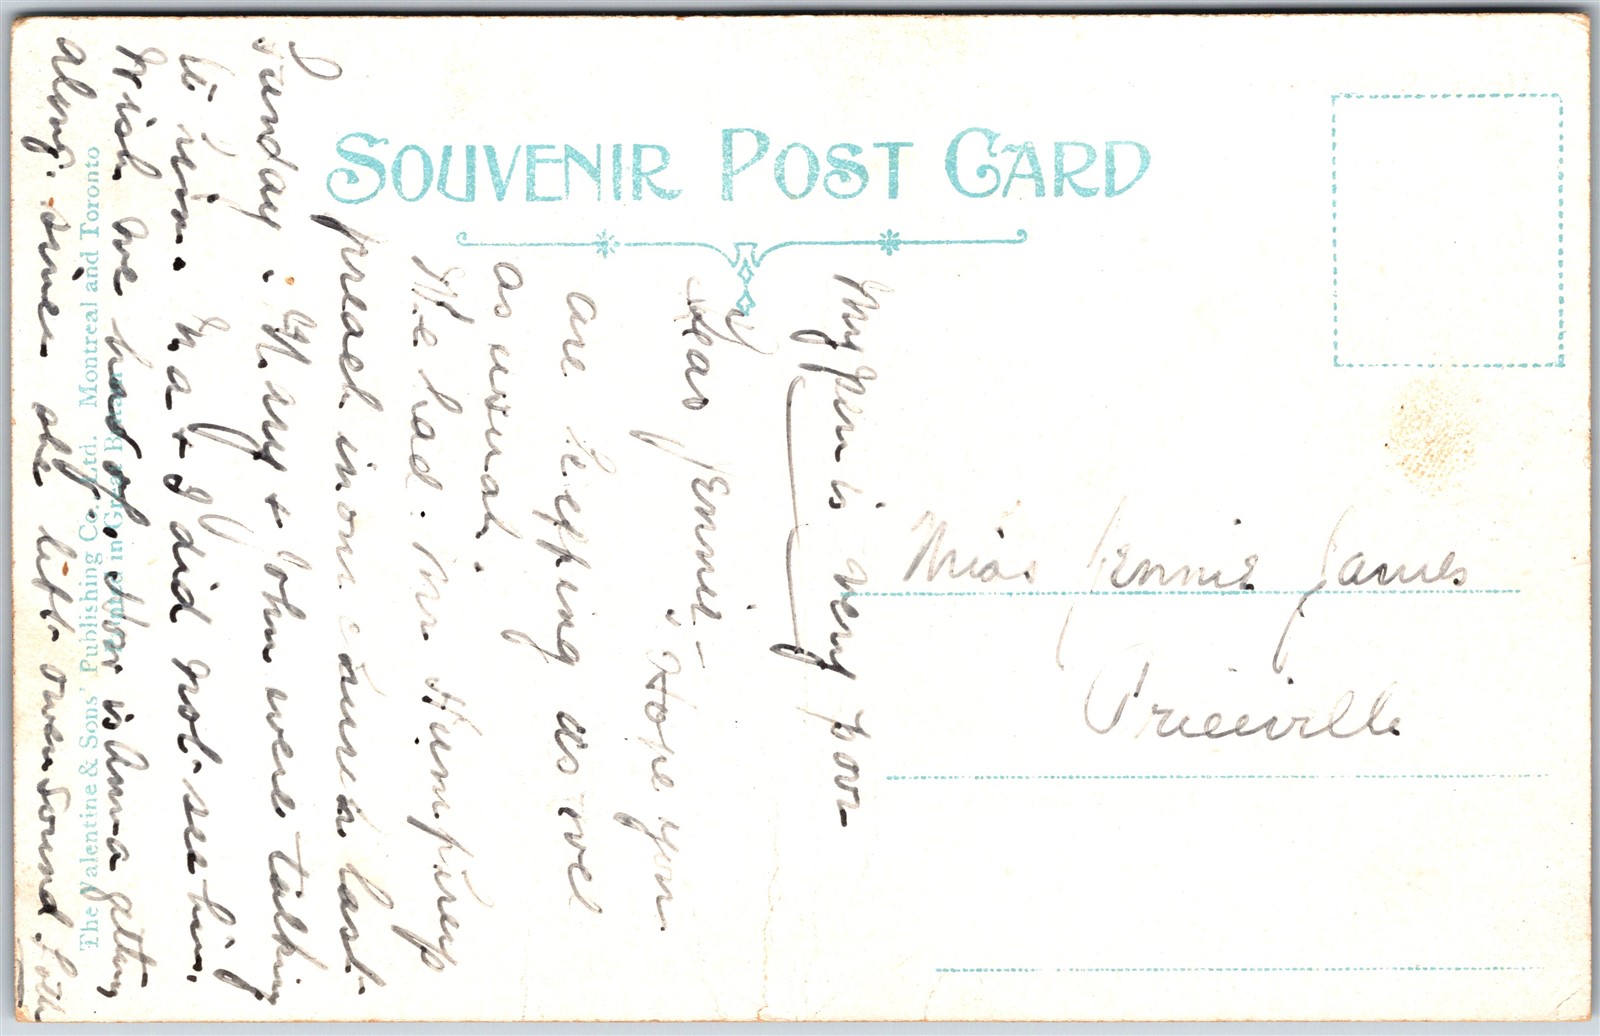 SOUVENIR POST CARD
My pen is very poor
Dear Jennie –
Hope you
are keeping as well
as usual.
We had Mr Humphreys
preach in our church last
Sunday. Mary & John were talking
to him. Ma & I did not see him.
Wish we had of. How is Anna getting
along since she left Owen Sound.
Miss Jennie James
Priceville
The Valentine & Sons' Publishing Co., Ltd. Montreal and Toronto
in Great Britain